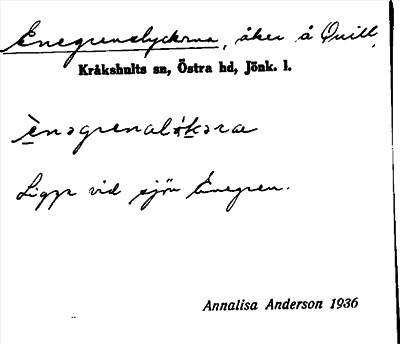 Enegrenslyckorna, åker å Quill,
Kråkshults sn, Östra hd, Jönk. l.
ènəgrenaløkəra
Ligger vid sjön Enegren.
Annalisa Anderson 1936